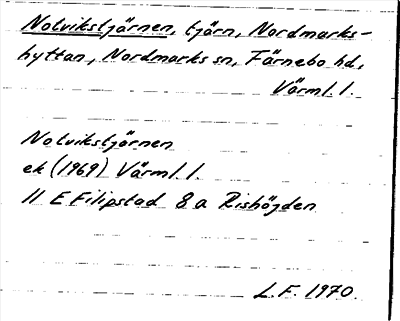 Notvikstjärnen, tjärn, Nordmarks-
hyttan, Nordmarks sn, Färnebo hd,
Värml. l.
Notvikstjärnen
ek (1969) Värml. l.
11 E Filipstad 8a Rishöjden
L.F. 1970.